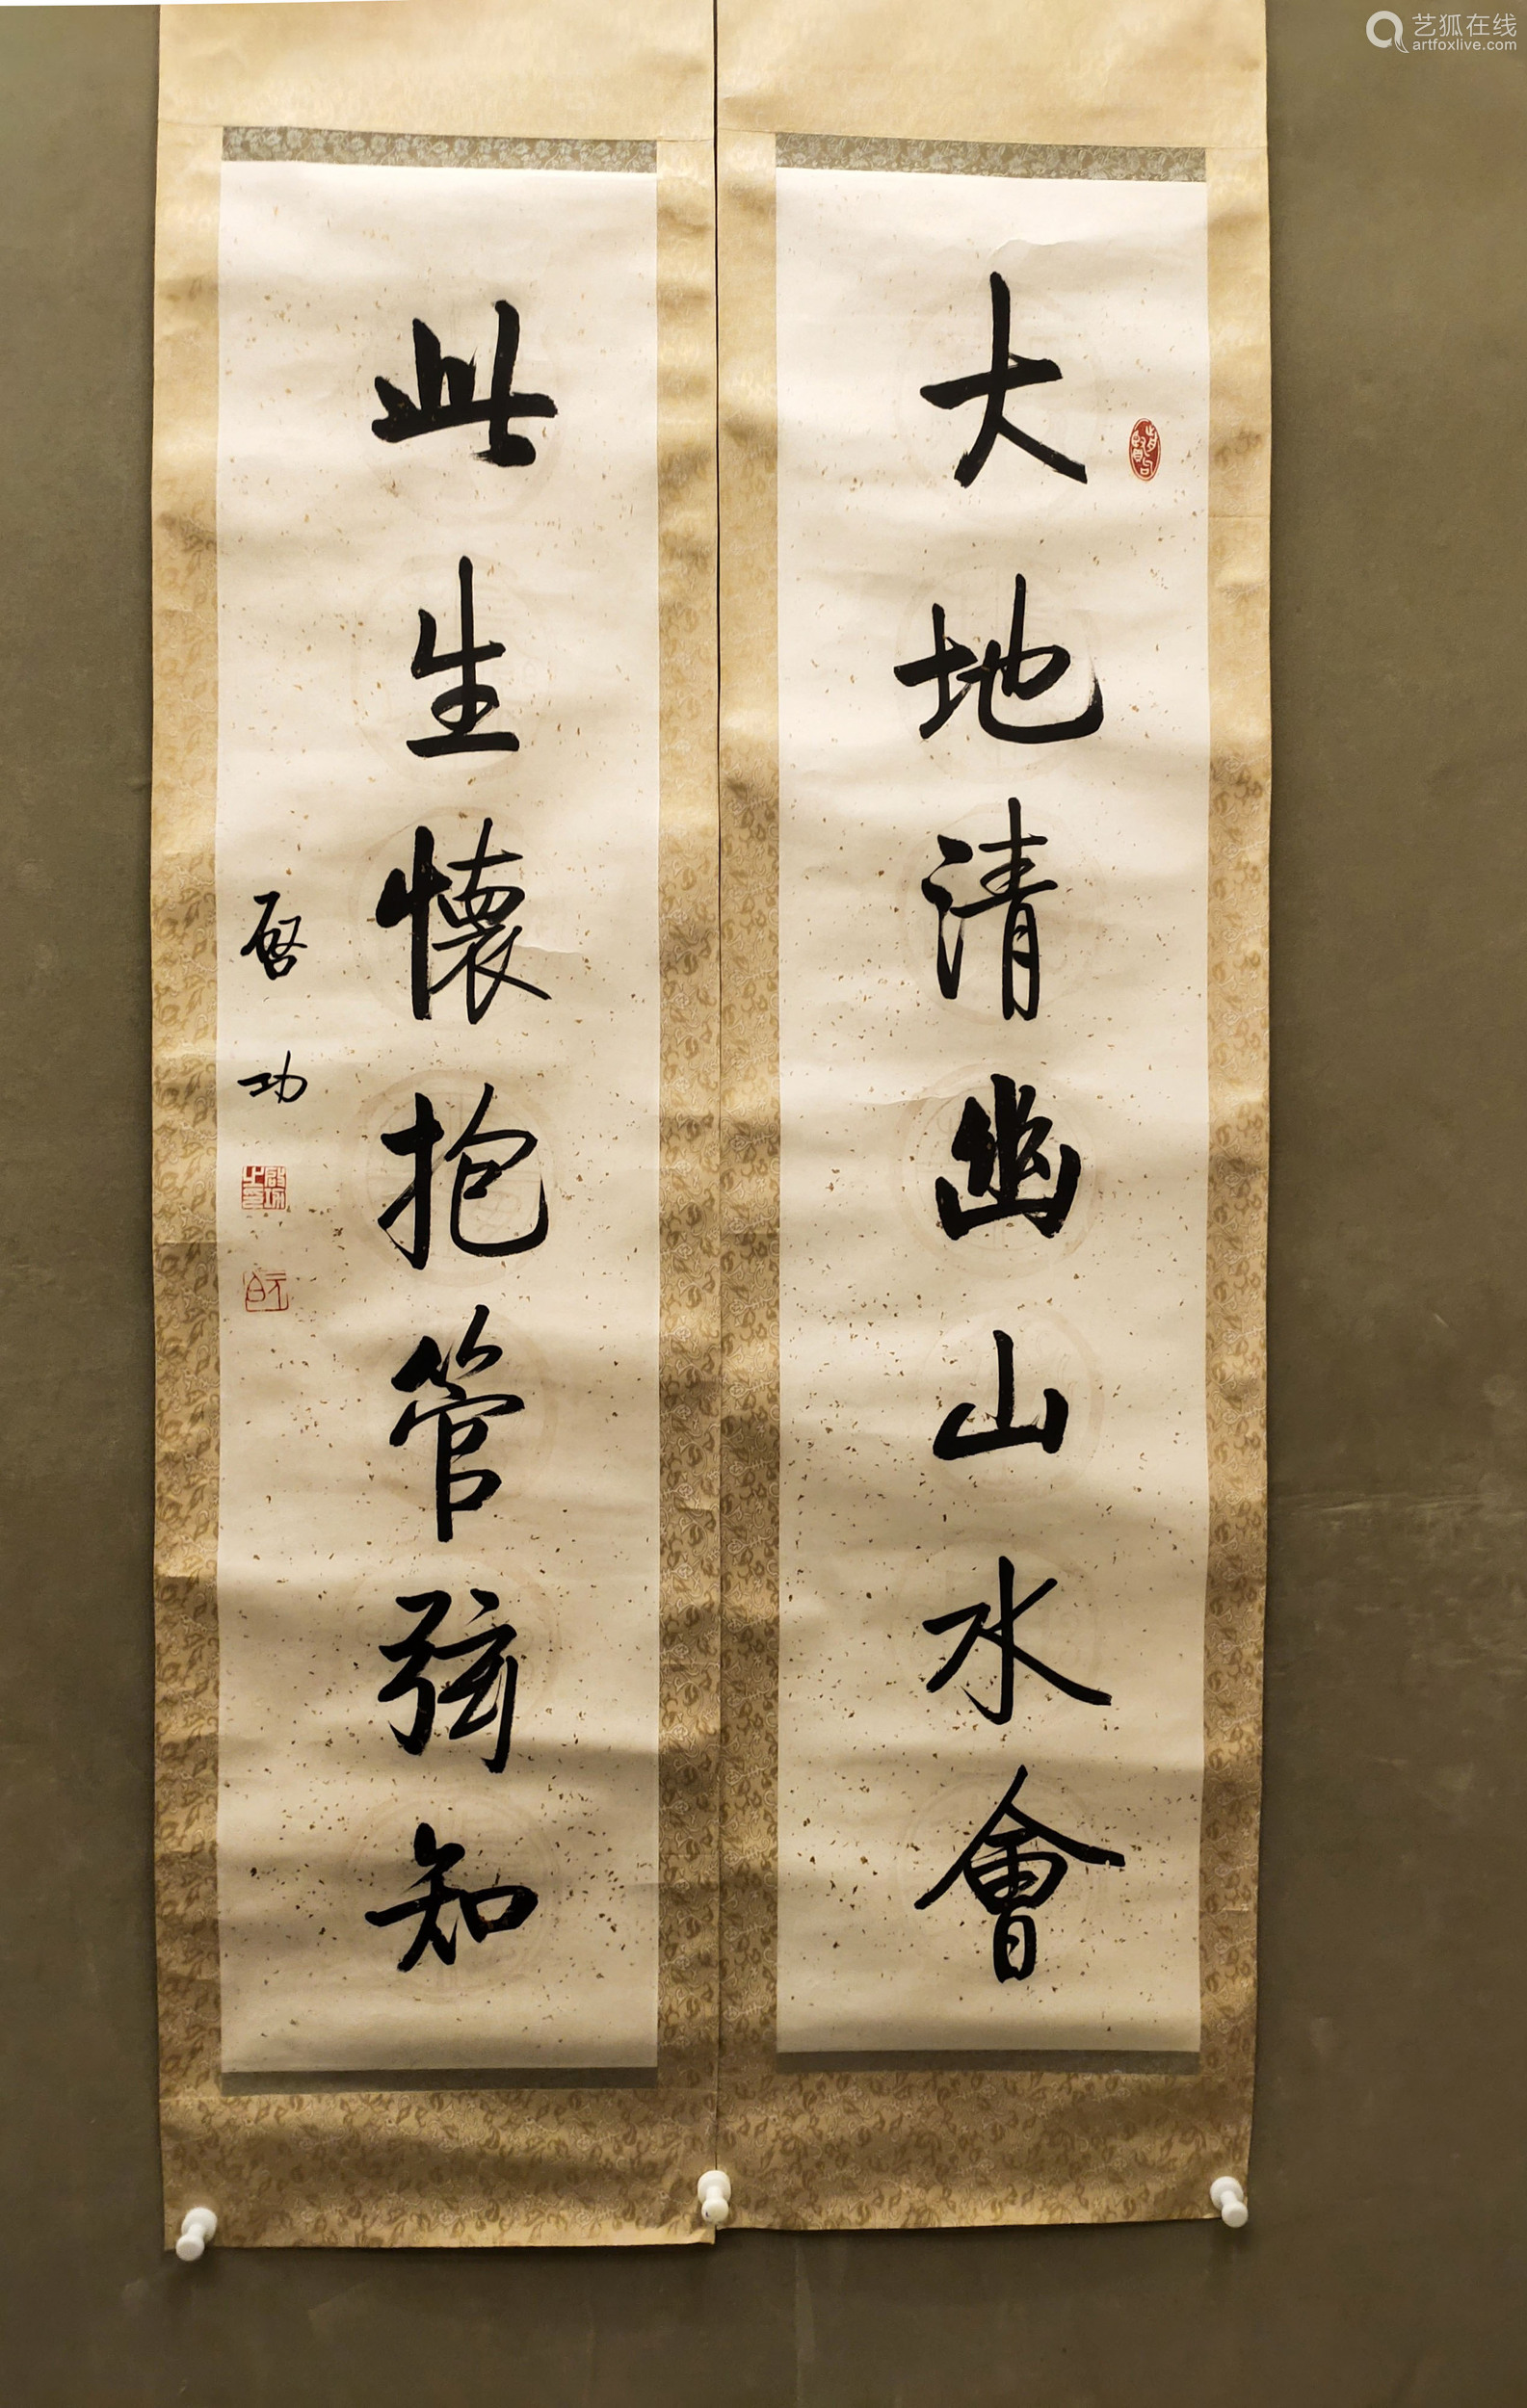 大地清幽山水會
此生懷抱管弦知
啓功
艺狐在线
artfoxlive.com